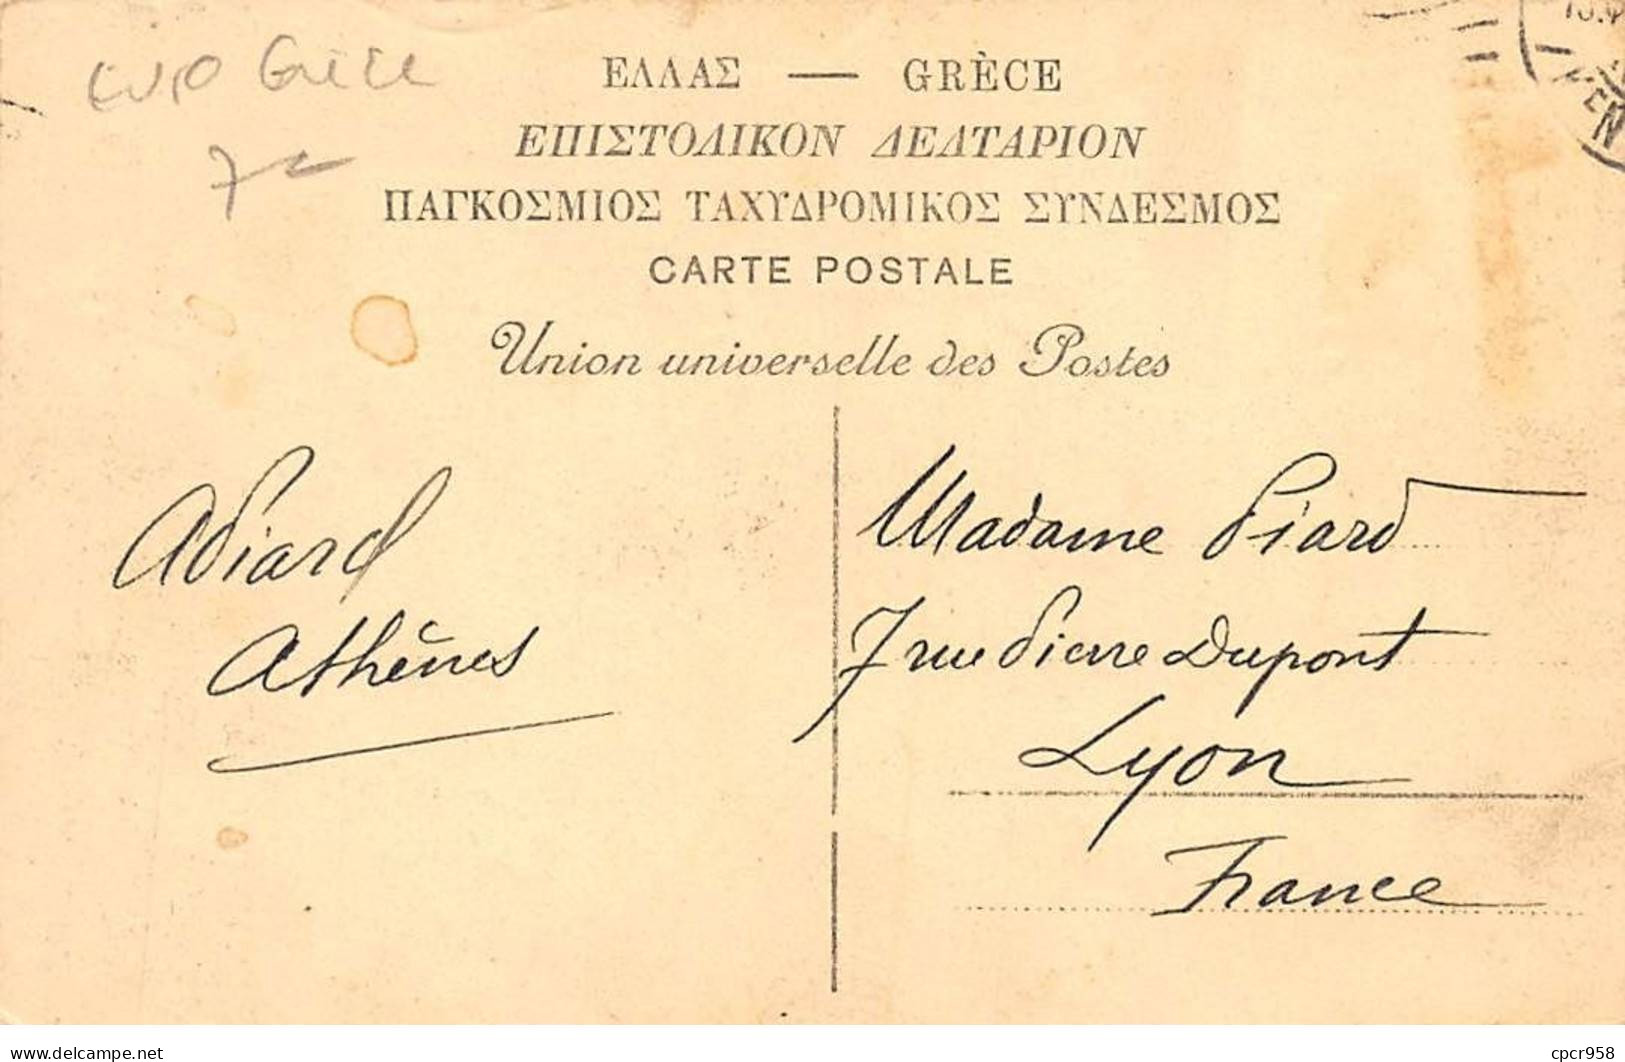 EUP Grèce
7€
ΕΛΛΑΣ — GRÈCE
ΕΠΙΣΤΟΛΙΚΟΝ ΔΕΛΤΑΡΙΟΝ
ΠΑΓΚΟΣΜΙΟΣ ΤΑΧΥΔΡΟΜΙΚΟΣ ΣΥΝΔΕΣΜΟΣ
CARTE POSTALE
Union universelle des Postes
APiard
Athènes
Madame Piard
7 rue Pierre Dupont
Lyon
France
cpcr958